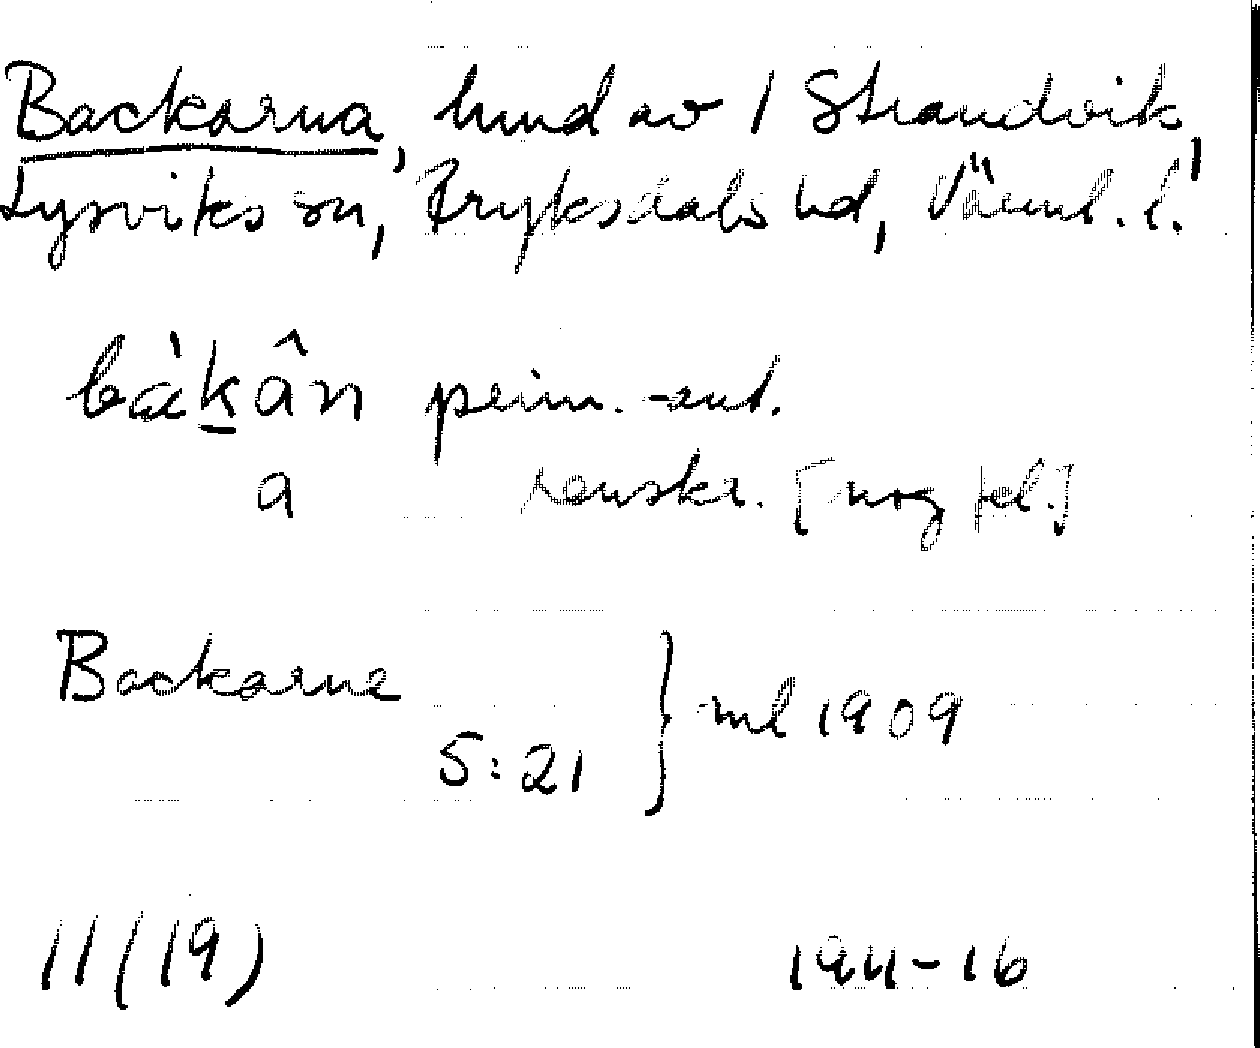 Backarna, hmd av 1 Strandvik,
Lysviks sn, Fryksdals hd, Värml. l.
bàkân prim.-ant.
a renskr. [nog fel.]
Backarne
5:21 } ml 1909
11(19) 1911-16